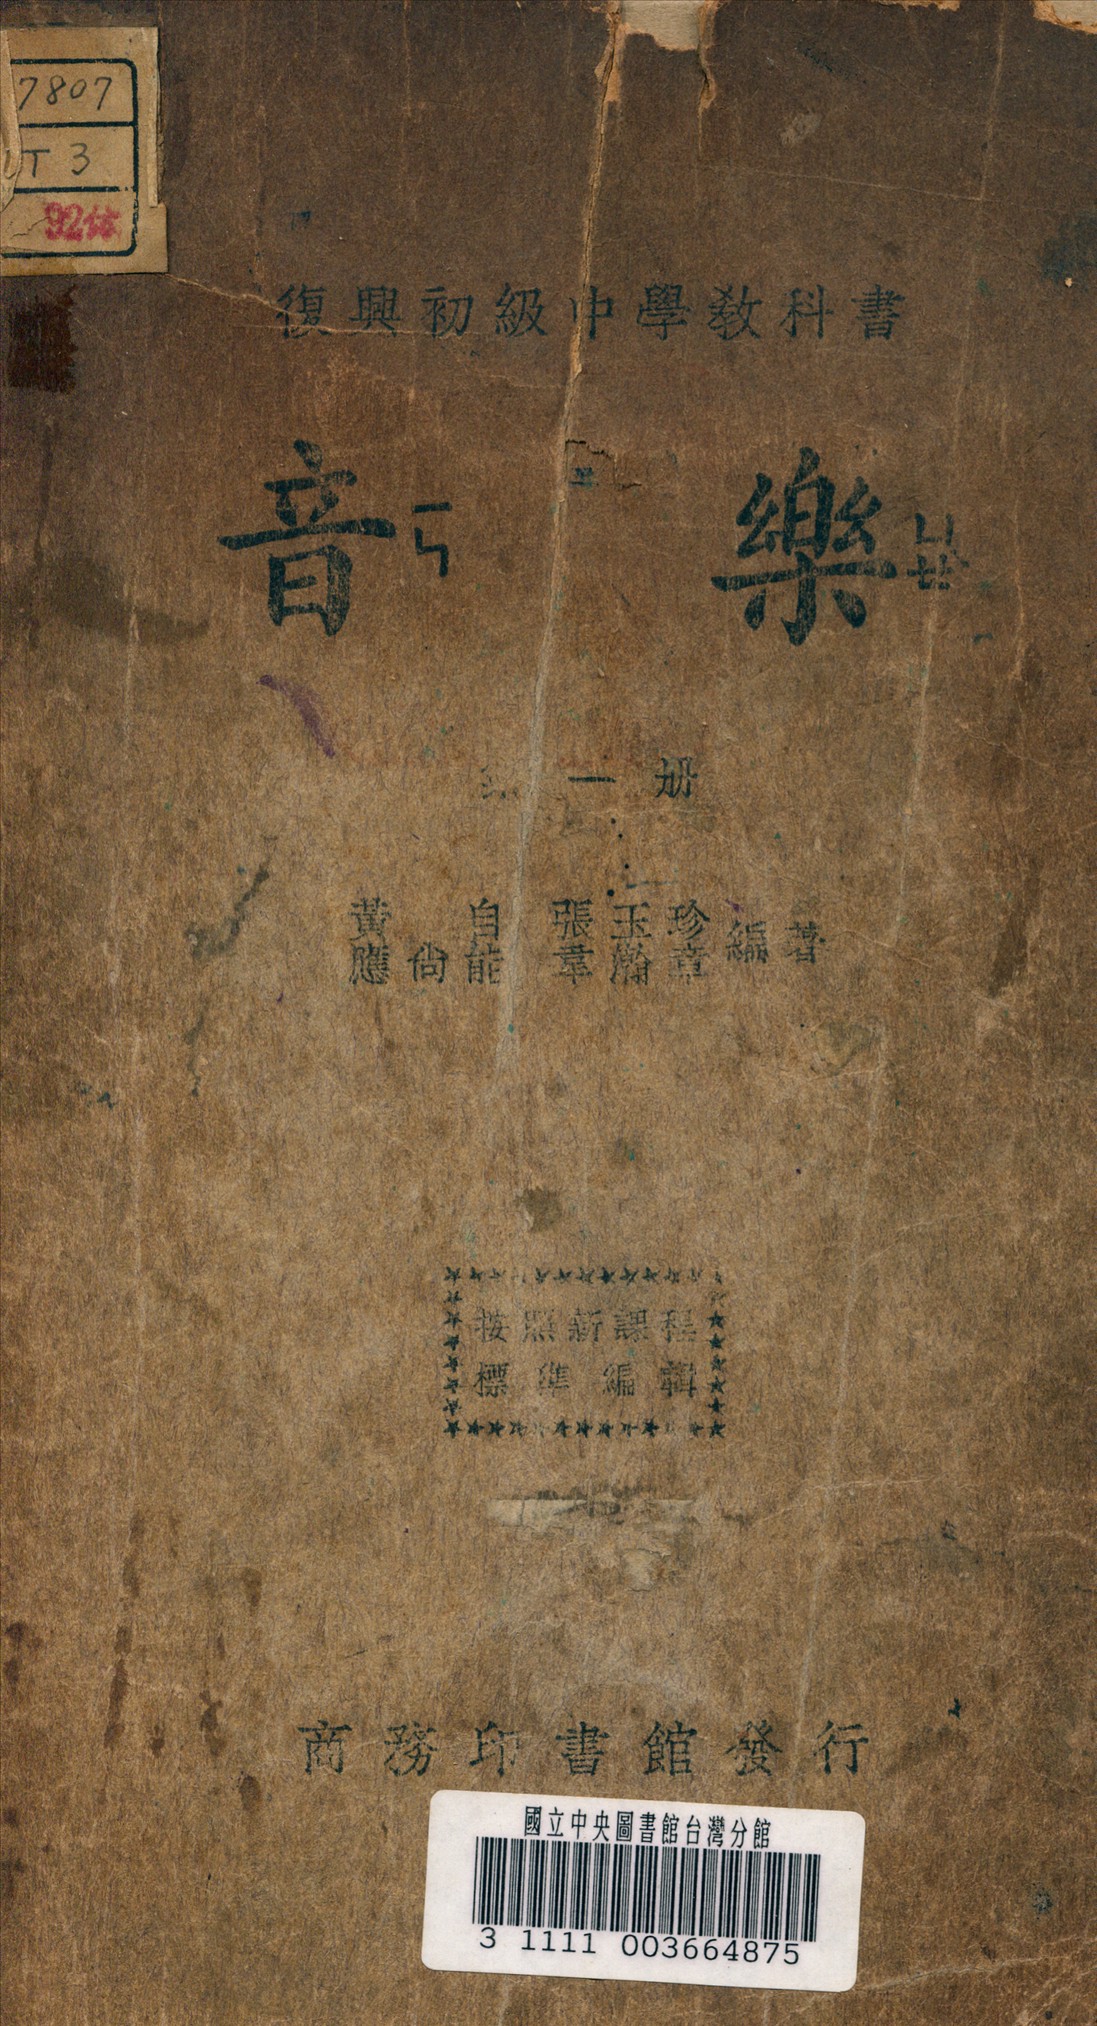 7807
LT 3
92
復興初級中學教科書
音 樂
第一册
黃自 張玉珍
應尚能 韋瀚章
編著
按照新課程
標準編輯
商務印書館發行
國立中央圖書館台灣分館
3 1111 003664875